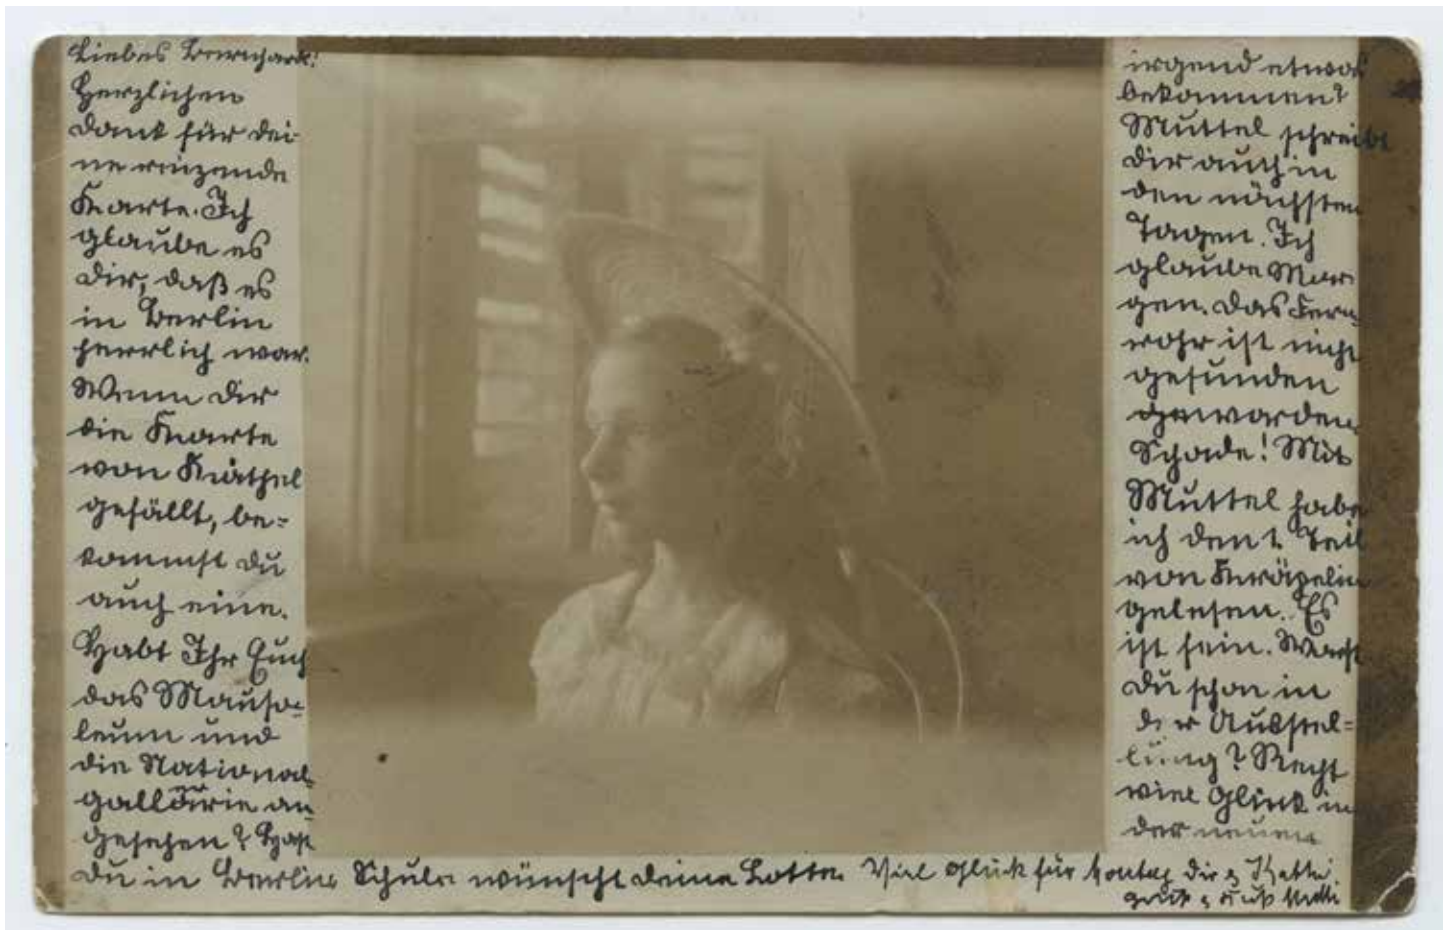 Liebes Bernhard!
Herzlichen
Dank für dei-
ne reizende
Karte. Ich
glaube es
dir, daß es
in Berlin
herrlich war.
Wenn dir
die Karte
von Käthel
gefällt, be-
kommst du
auch eine.
Habt Ihr Euch
das Mauso-
leum und
die National-
gallärie an
gesehen? Hast
du in Berlin
irgend etwas
bekommen?
Muttel schreibt
dir auch in
den nächsten
Tagen. Ich
glaube Mor-
gen. Das Fern-
rohr ist nicht
gefunden
geworden.
Schade! Mit
Muttel habe
ich den 1. Teil
von Kräpelin
gelesen. Es
ist fein. Warst
du schon in
der Ausstel-
lung? Recht
viel Glück in
der neuen
Schule wünscht deine Lotte. Viel Glück für Montag dir
Gruß Kuß